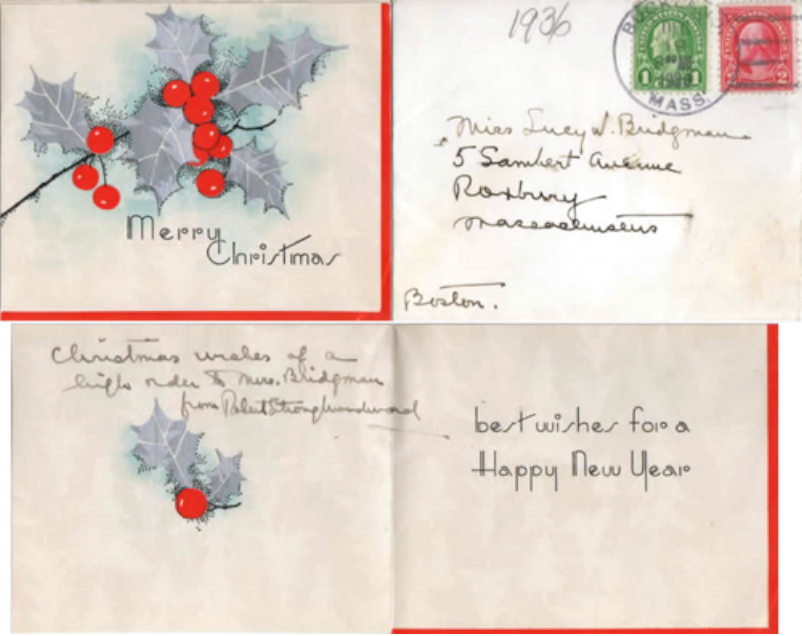 Merry
Christmas
1936
BUCKLAND
MASS.
1 1
2
Miss Lucy W. Bridgman
5 Lambert Avenue
Roxbury
Massachusetts
Boston.
Christmas wishes of a
high order to Miss. Bridgman
from Robert Strong Woodward
best wishes for a
Happy New Year